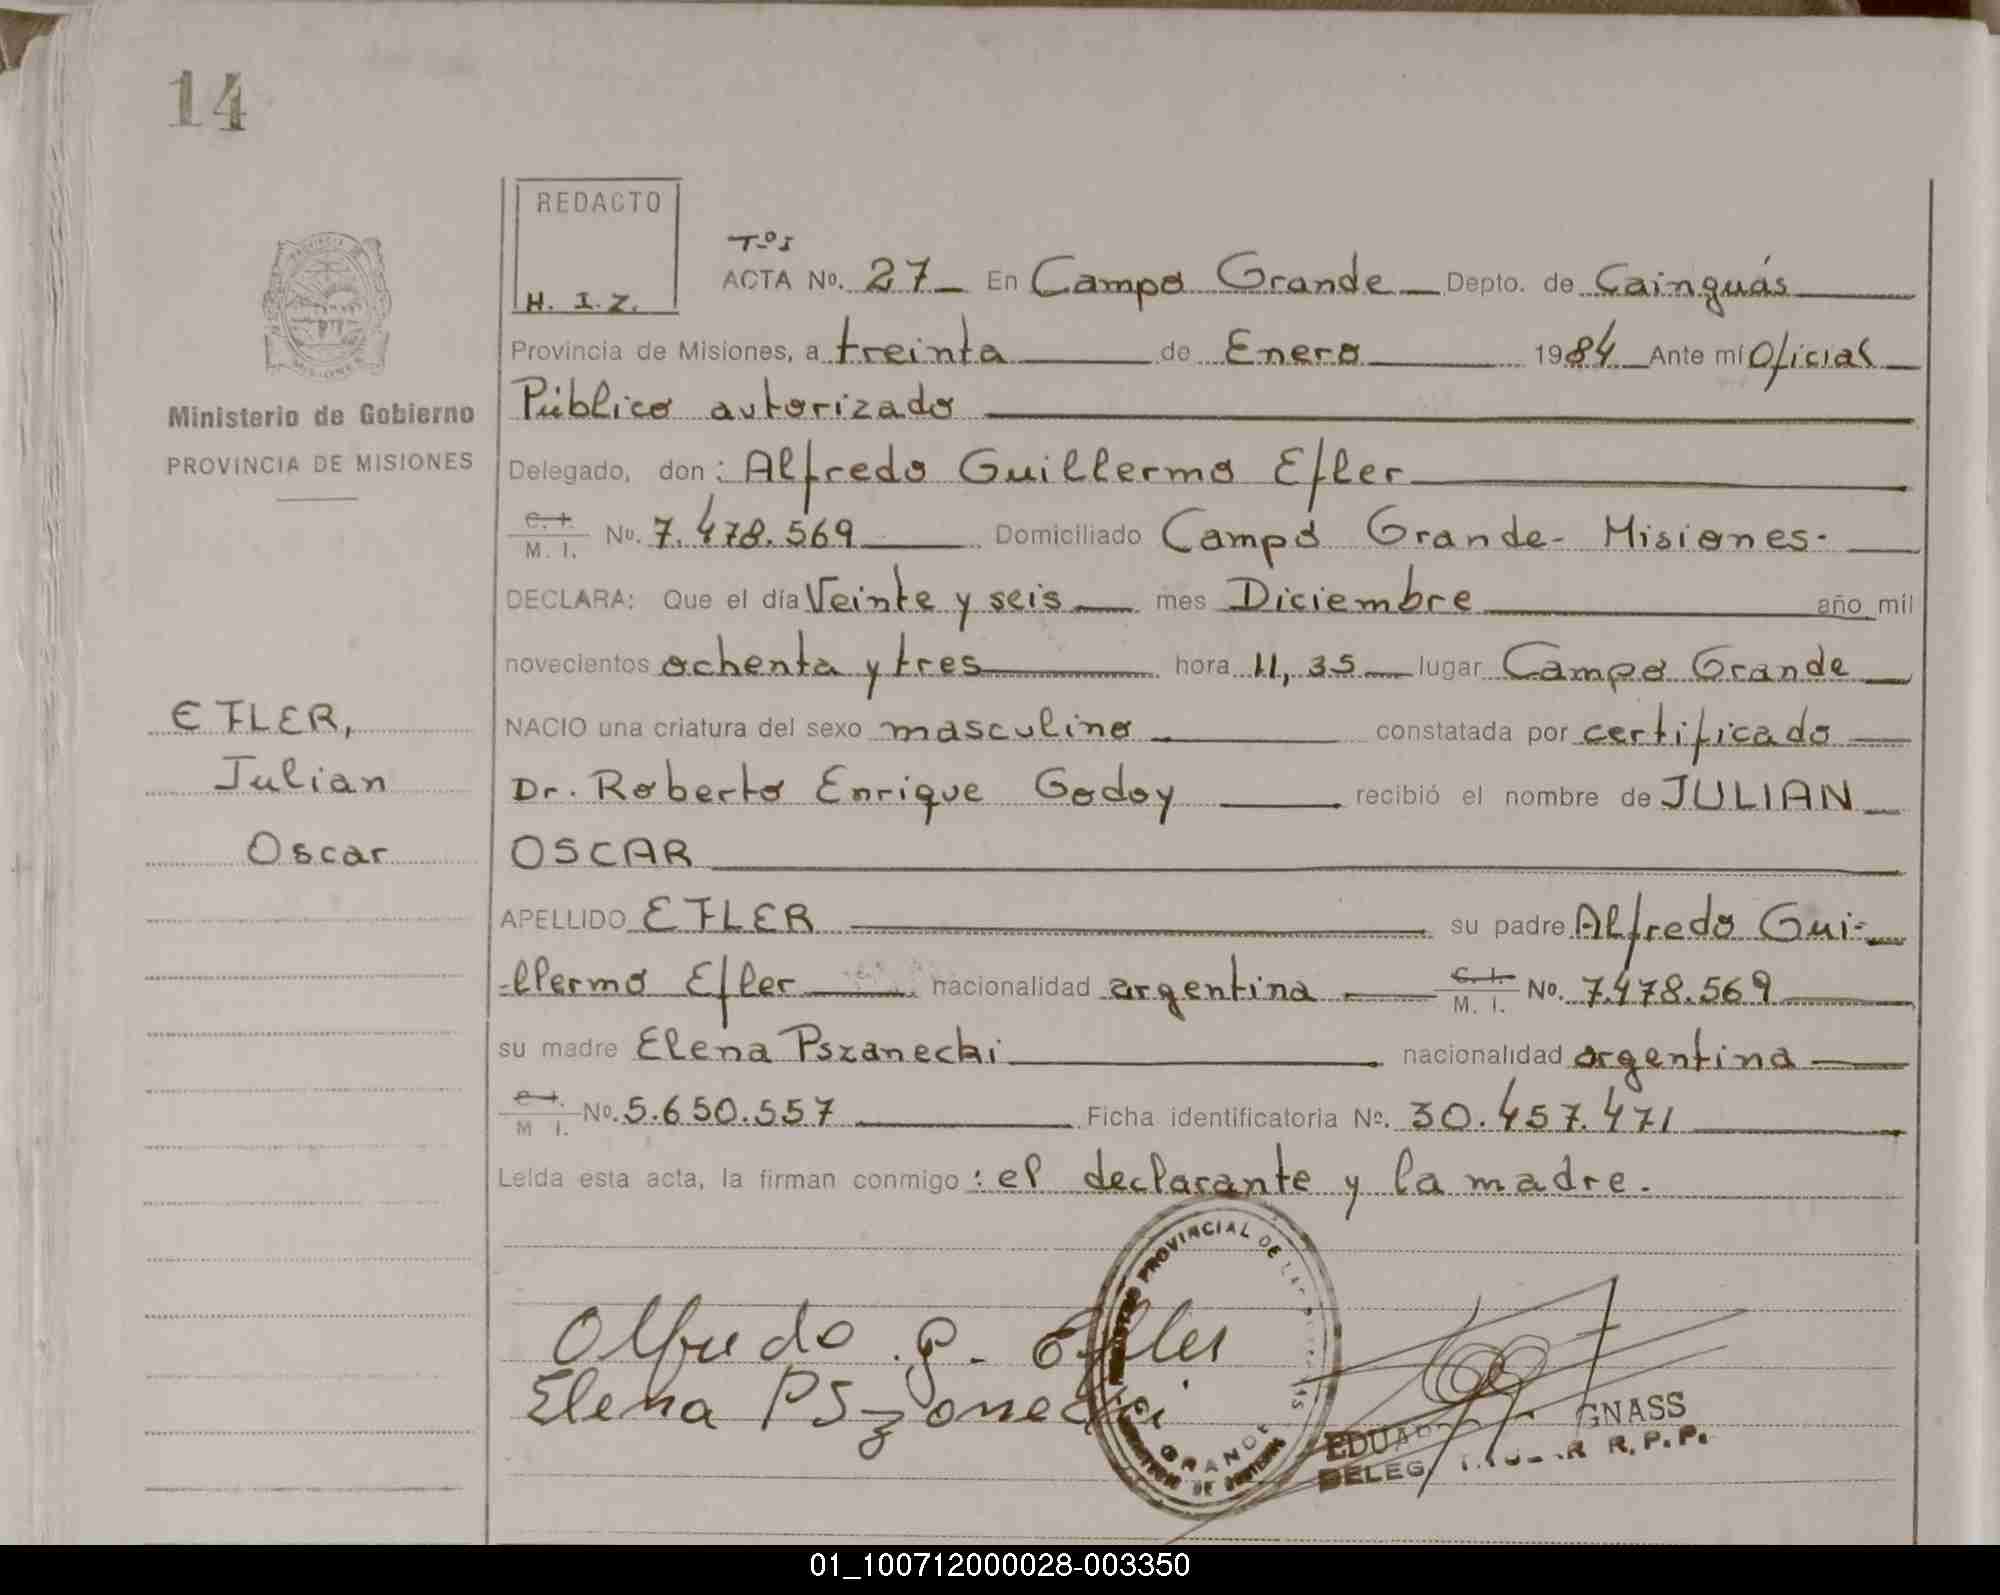 14
REDACTO
H. I. Z.
Tº I
ACTA No. 27 En Campo Grande Depto. de Cainguás
Provincia de Misiones, a treinta de Enero 1984 Ante mí Oficial
Público autorizado
Delegado, don: Alfredo Guillermo Efler
C. I. M. I. No. 7.478.569 Domiciliado Campo Grande - Misiones.
DECLARA: Que el día Veinte y seis mes Diciembre año mil
novecientos ochenta y tres hora 11,35 lugar Campo Grande
NACIO una criatura del sexo masculino constatada por certificado
Dr. Roberto Enrique Godoy recibió el nombre de JULIAN
OSCAR
APELLIDO EFLER su padre Alfredo Gui-
-llermo Efler nacionalidad argentina C. I. M. I. No. 7.478.569
su madre Elena Pszanecki nacionalidad argentina
C. I. M I. No. 5.650.557 Ficha identificatoria No. 30.457.471
Leída esta acta, la firman conmigo: el declarante y la madre.
Ministerio de Gobierno
PROVINCIA DE MISIONES
EFLER,
Julian
Oscar
Alfredo G. Efler
Elena PSzonecki
PROVINCIAL DE LAS
GRANDE
GNASS
R.P.P.
01_100712000028-003350